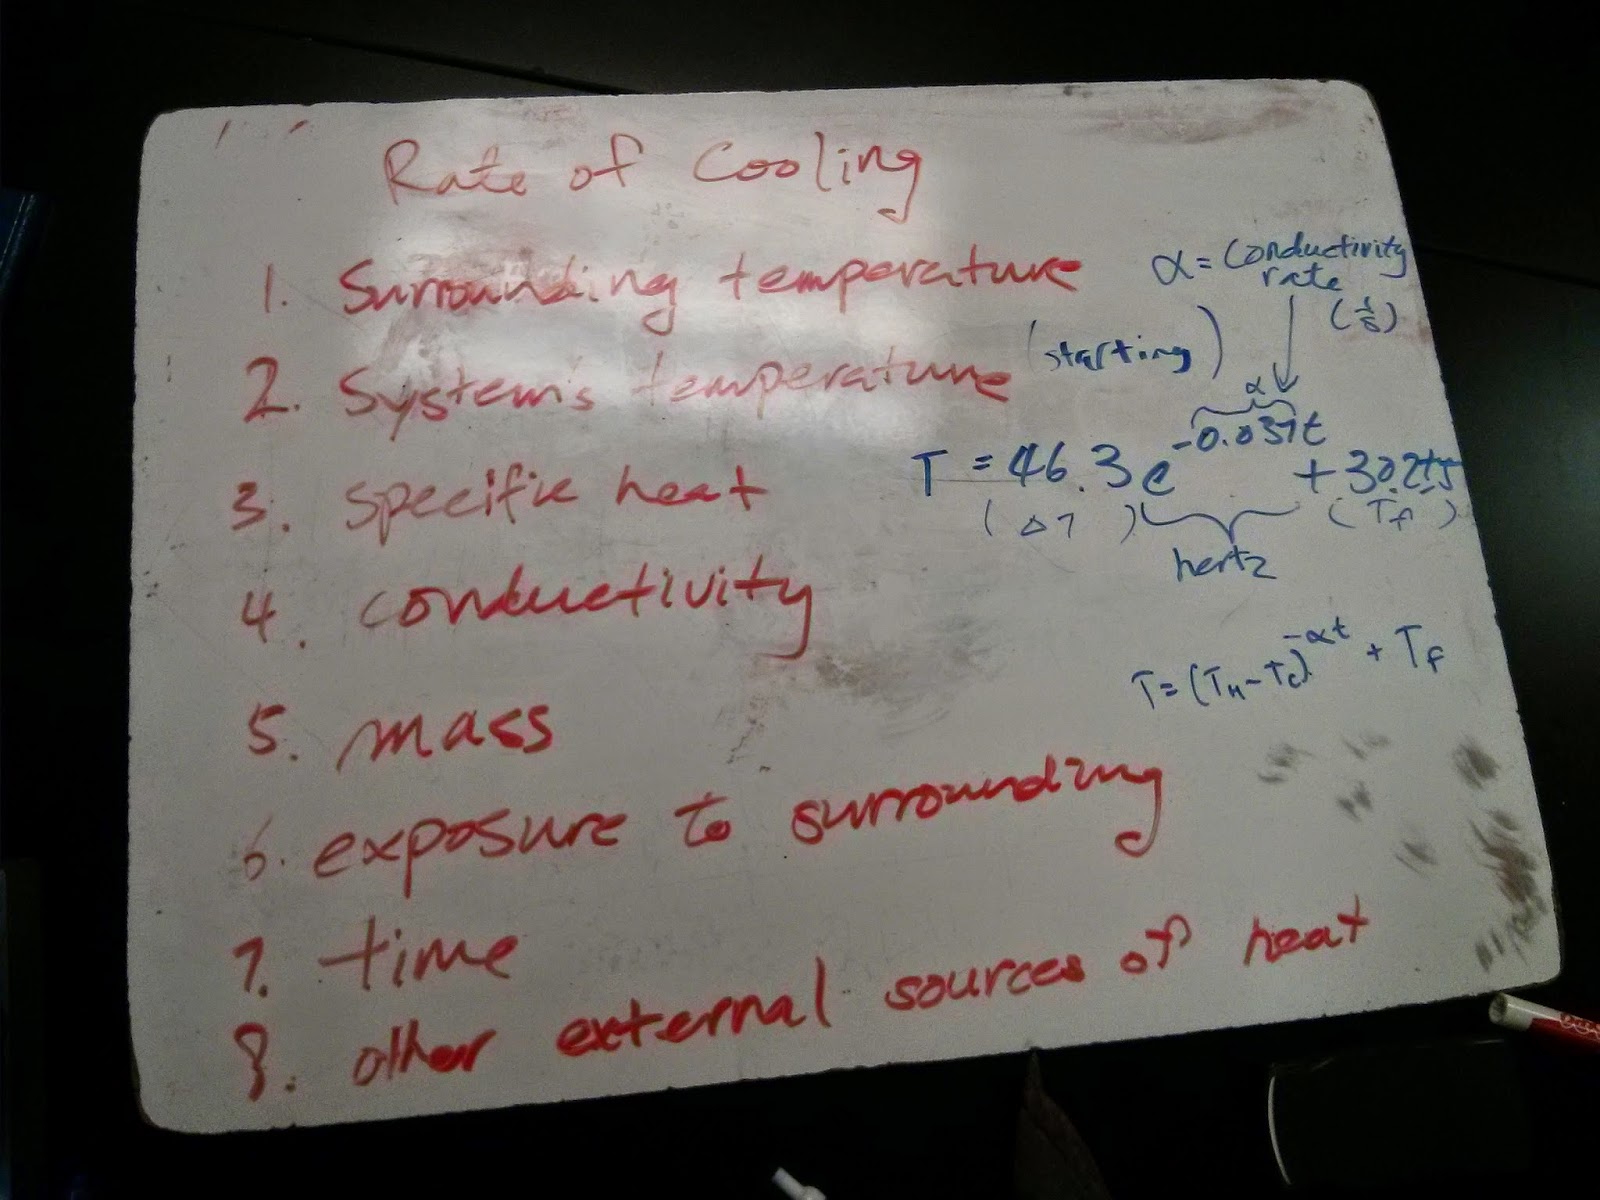 Rate of Cooling
1. Surrounding temperature
2. System's temperature (starting)
3. specific heat
4. conductivity
5. mass
6. exposure to surrounding
7. time
8. other external sources of heat
α = conductivity
rate
(1/s)
α
T = 46.3e^-0.037t + 30.2
(ΔT) (Tf)
hertz
T = (TH - Tc)^-αt + Tf